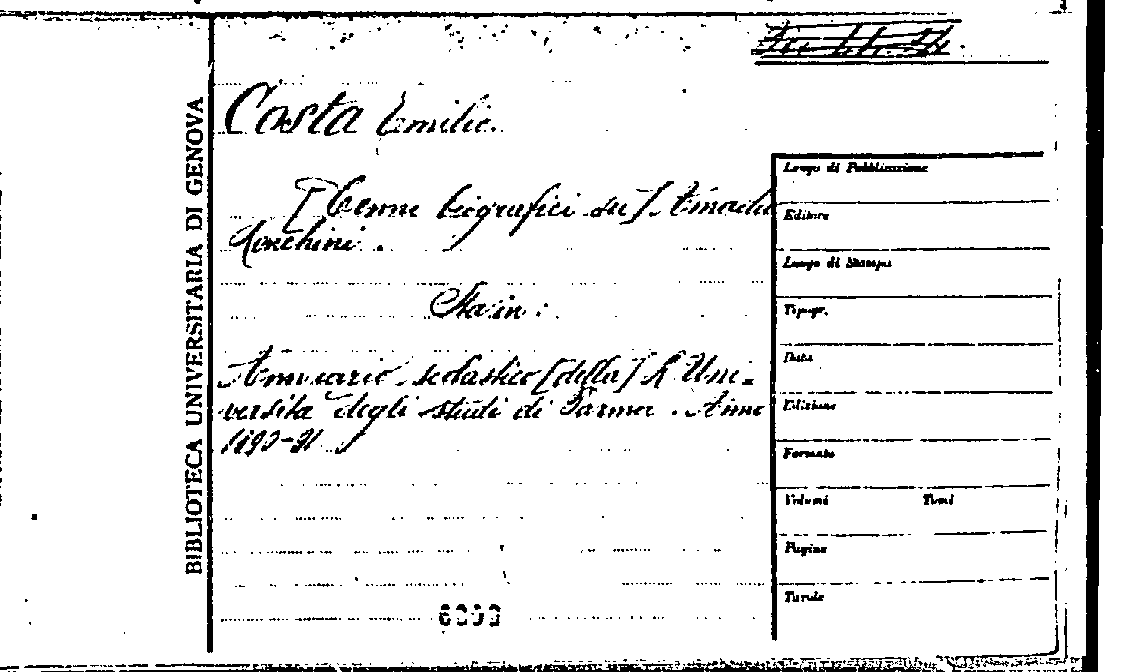 BIBLIOTECA UNIVERSITARIA DI GENOVA
Costa Emilio.
[Cenni biografici su] Amadio
Ronchini.
Sta in:
Annuario scolastico [della] R. Uni-
versità degli studi di Parma. Anno
1890-91
Luogo di Pubblicazione
Editore
Luogo di Stampa
Tipogr.
Data
Edizione
Formato
Volumi Tomi
Pagine
Tavole